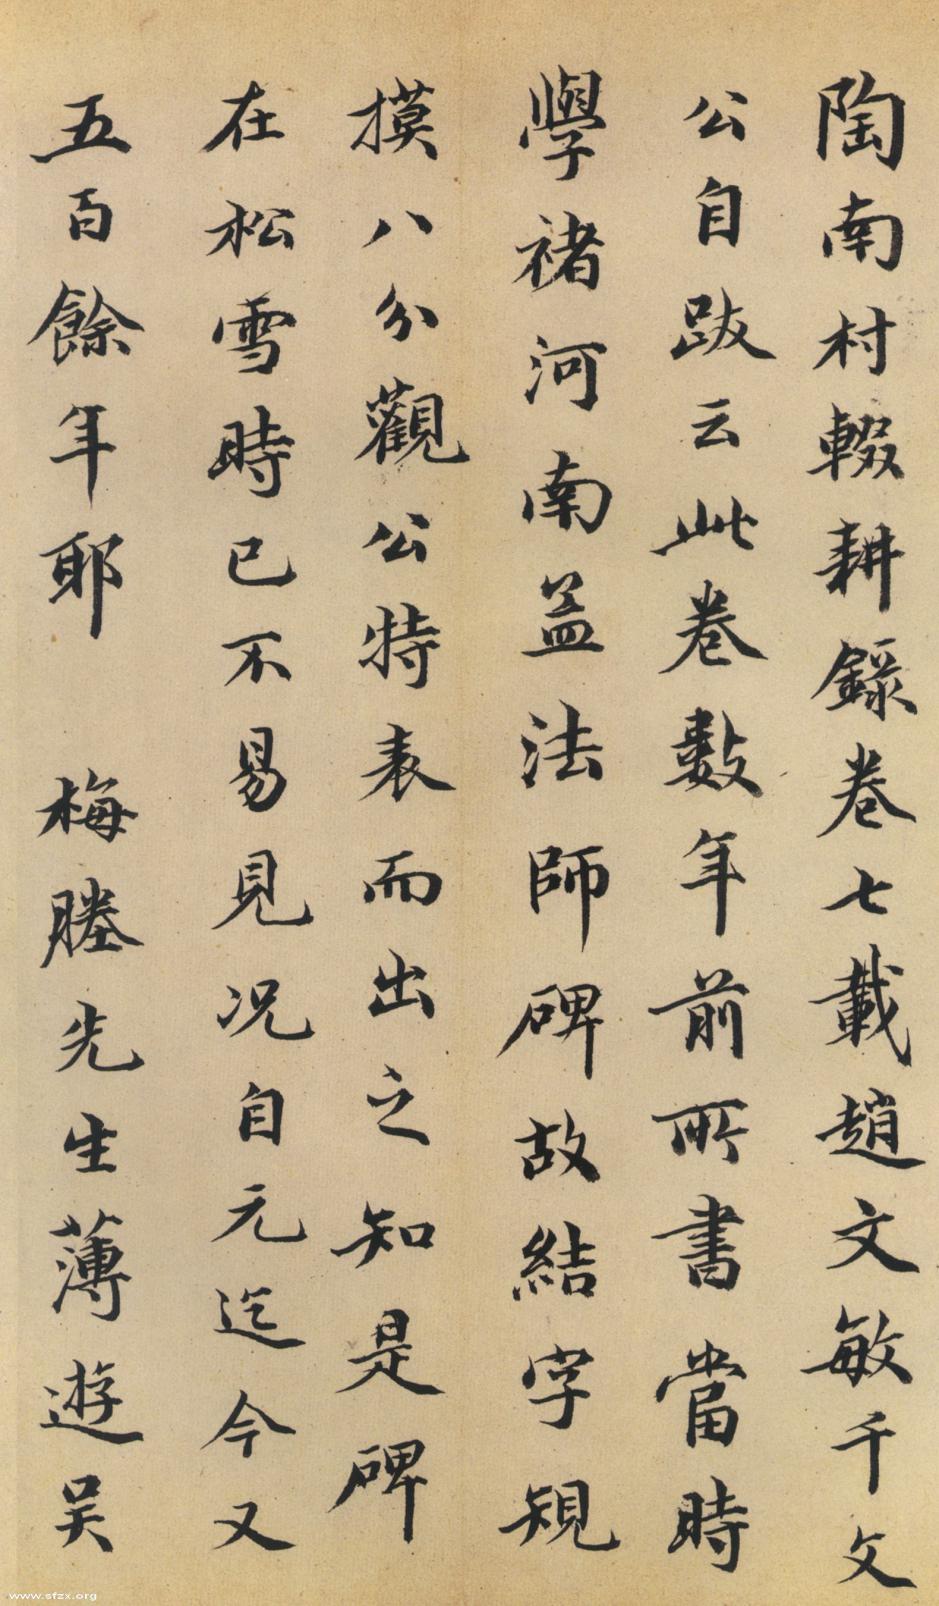 陶南村輟耕錄卷七載趙文敏千文
公自跋云此卷數年前所書當時
學褚河南孟法師碑故結字規
摸八分觀公特表而出之知是碑
在松雪時已不易見況自元迄今又
五百餘年耶　梅塍先生薄遊吴
www.sfzx.org